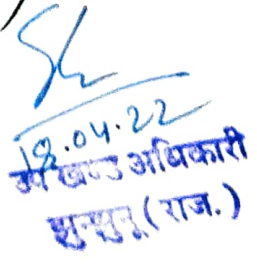 18.04.22
उप खण्ड अधिकारी
झुन्झुनू (राज.)